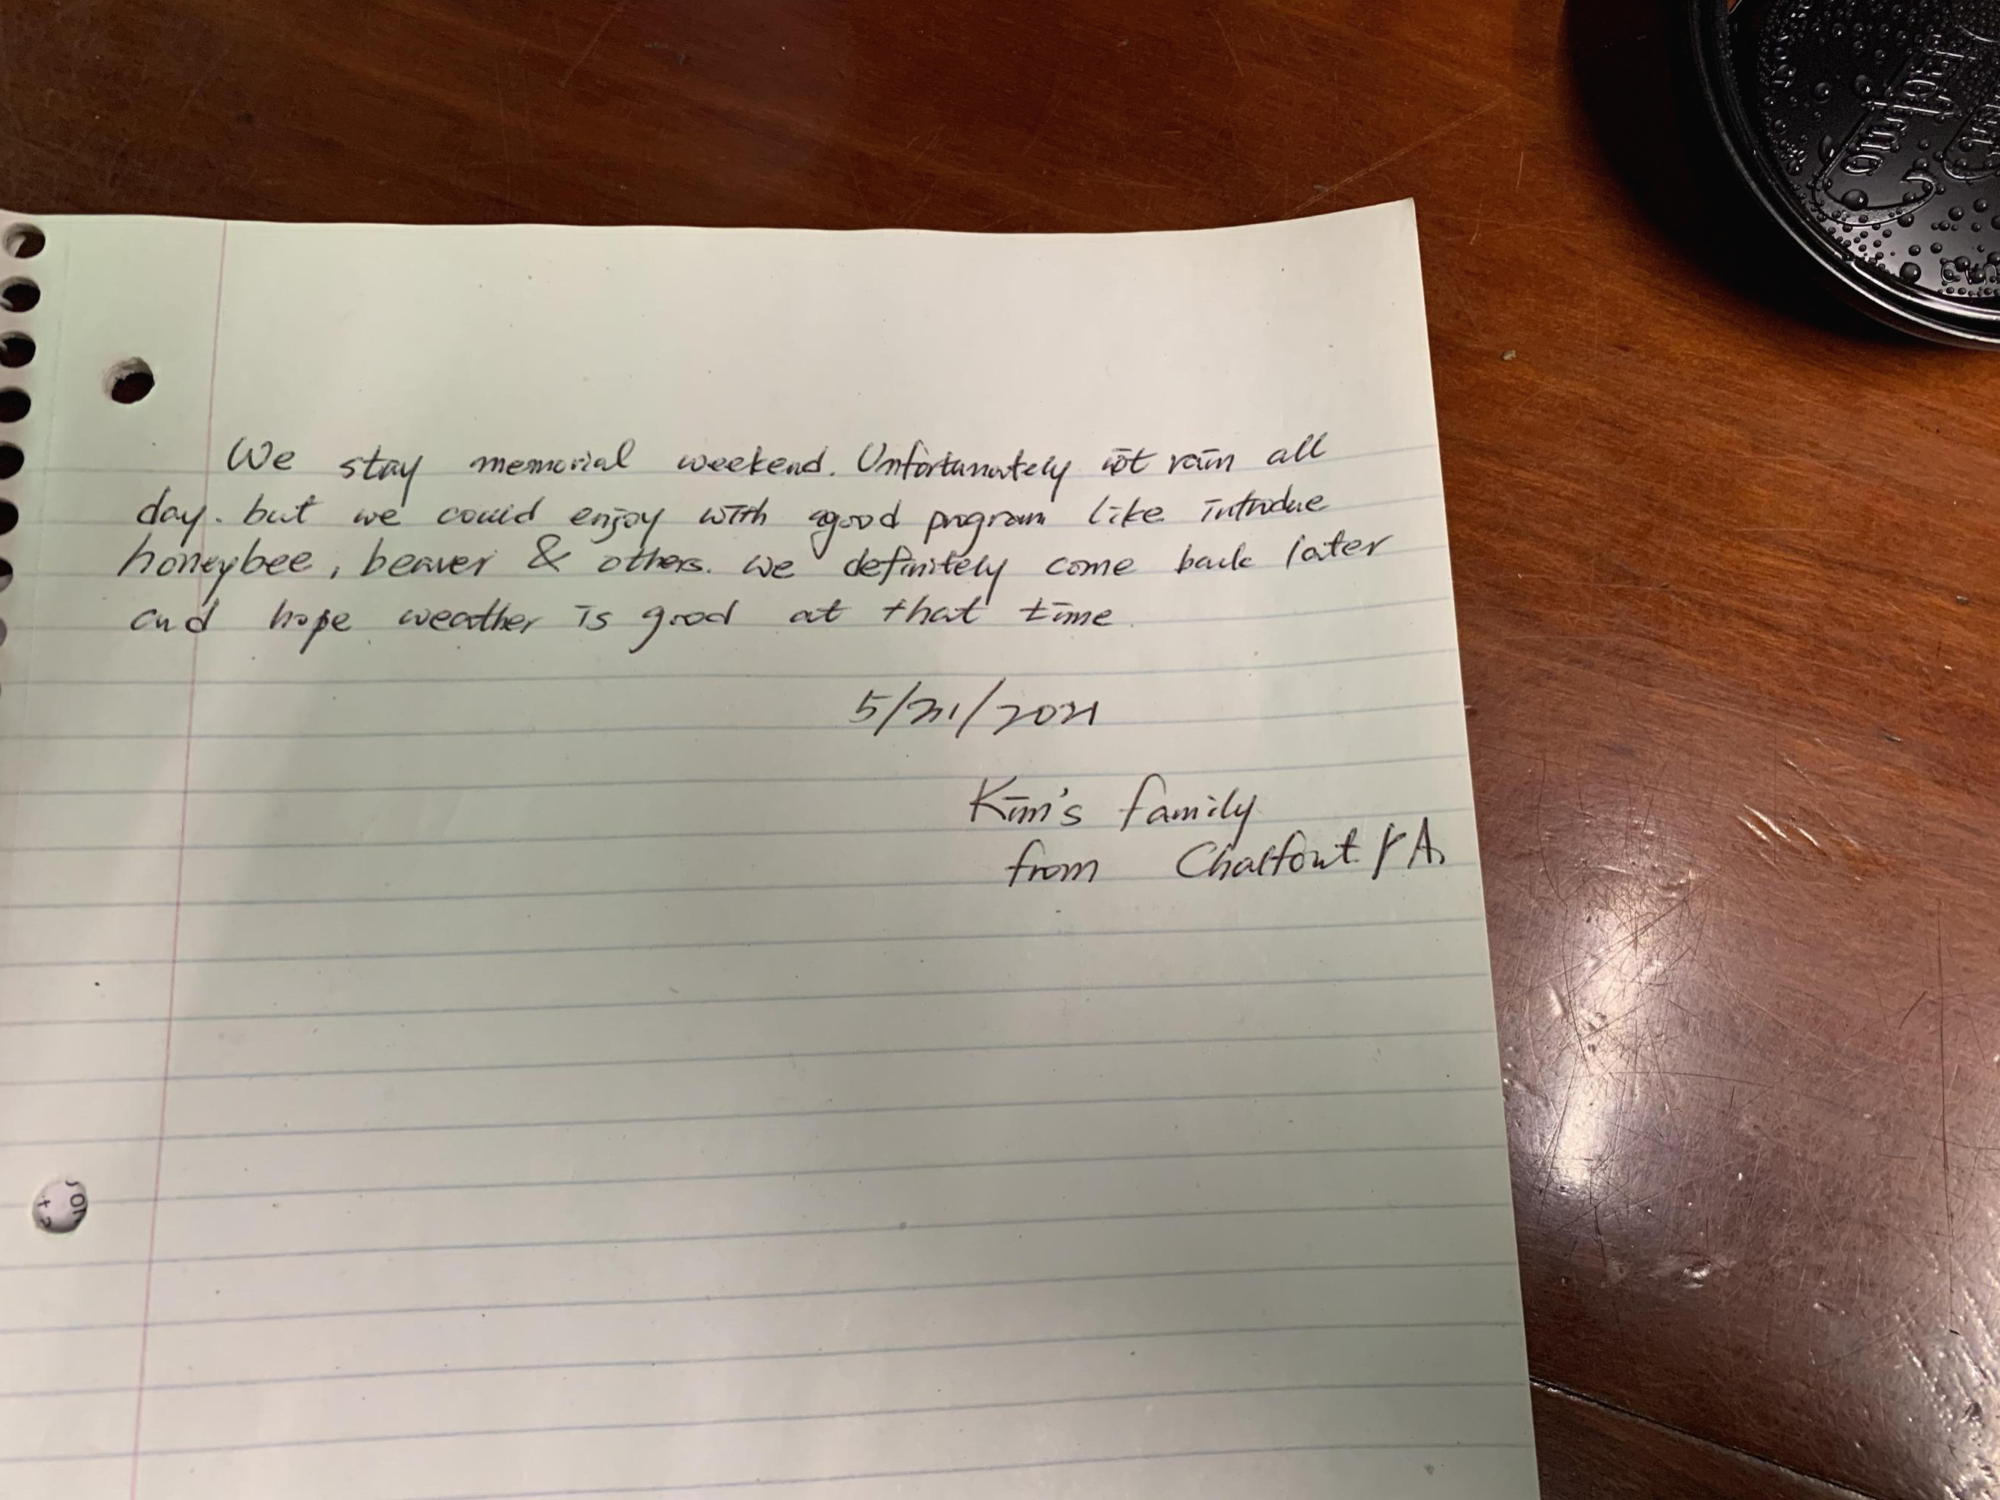 We stay memorial weekend. Unfortunately it rain all
day. but we could enjoy with good program like introdue
honeybee, beaver & others. we definitely come back later
and hope weather is good at that time.
5/31/2021
Kim's family
from Chalfont PA.